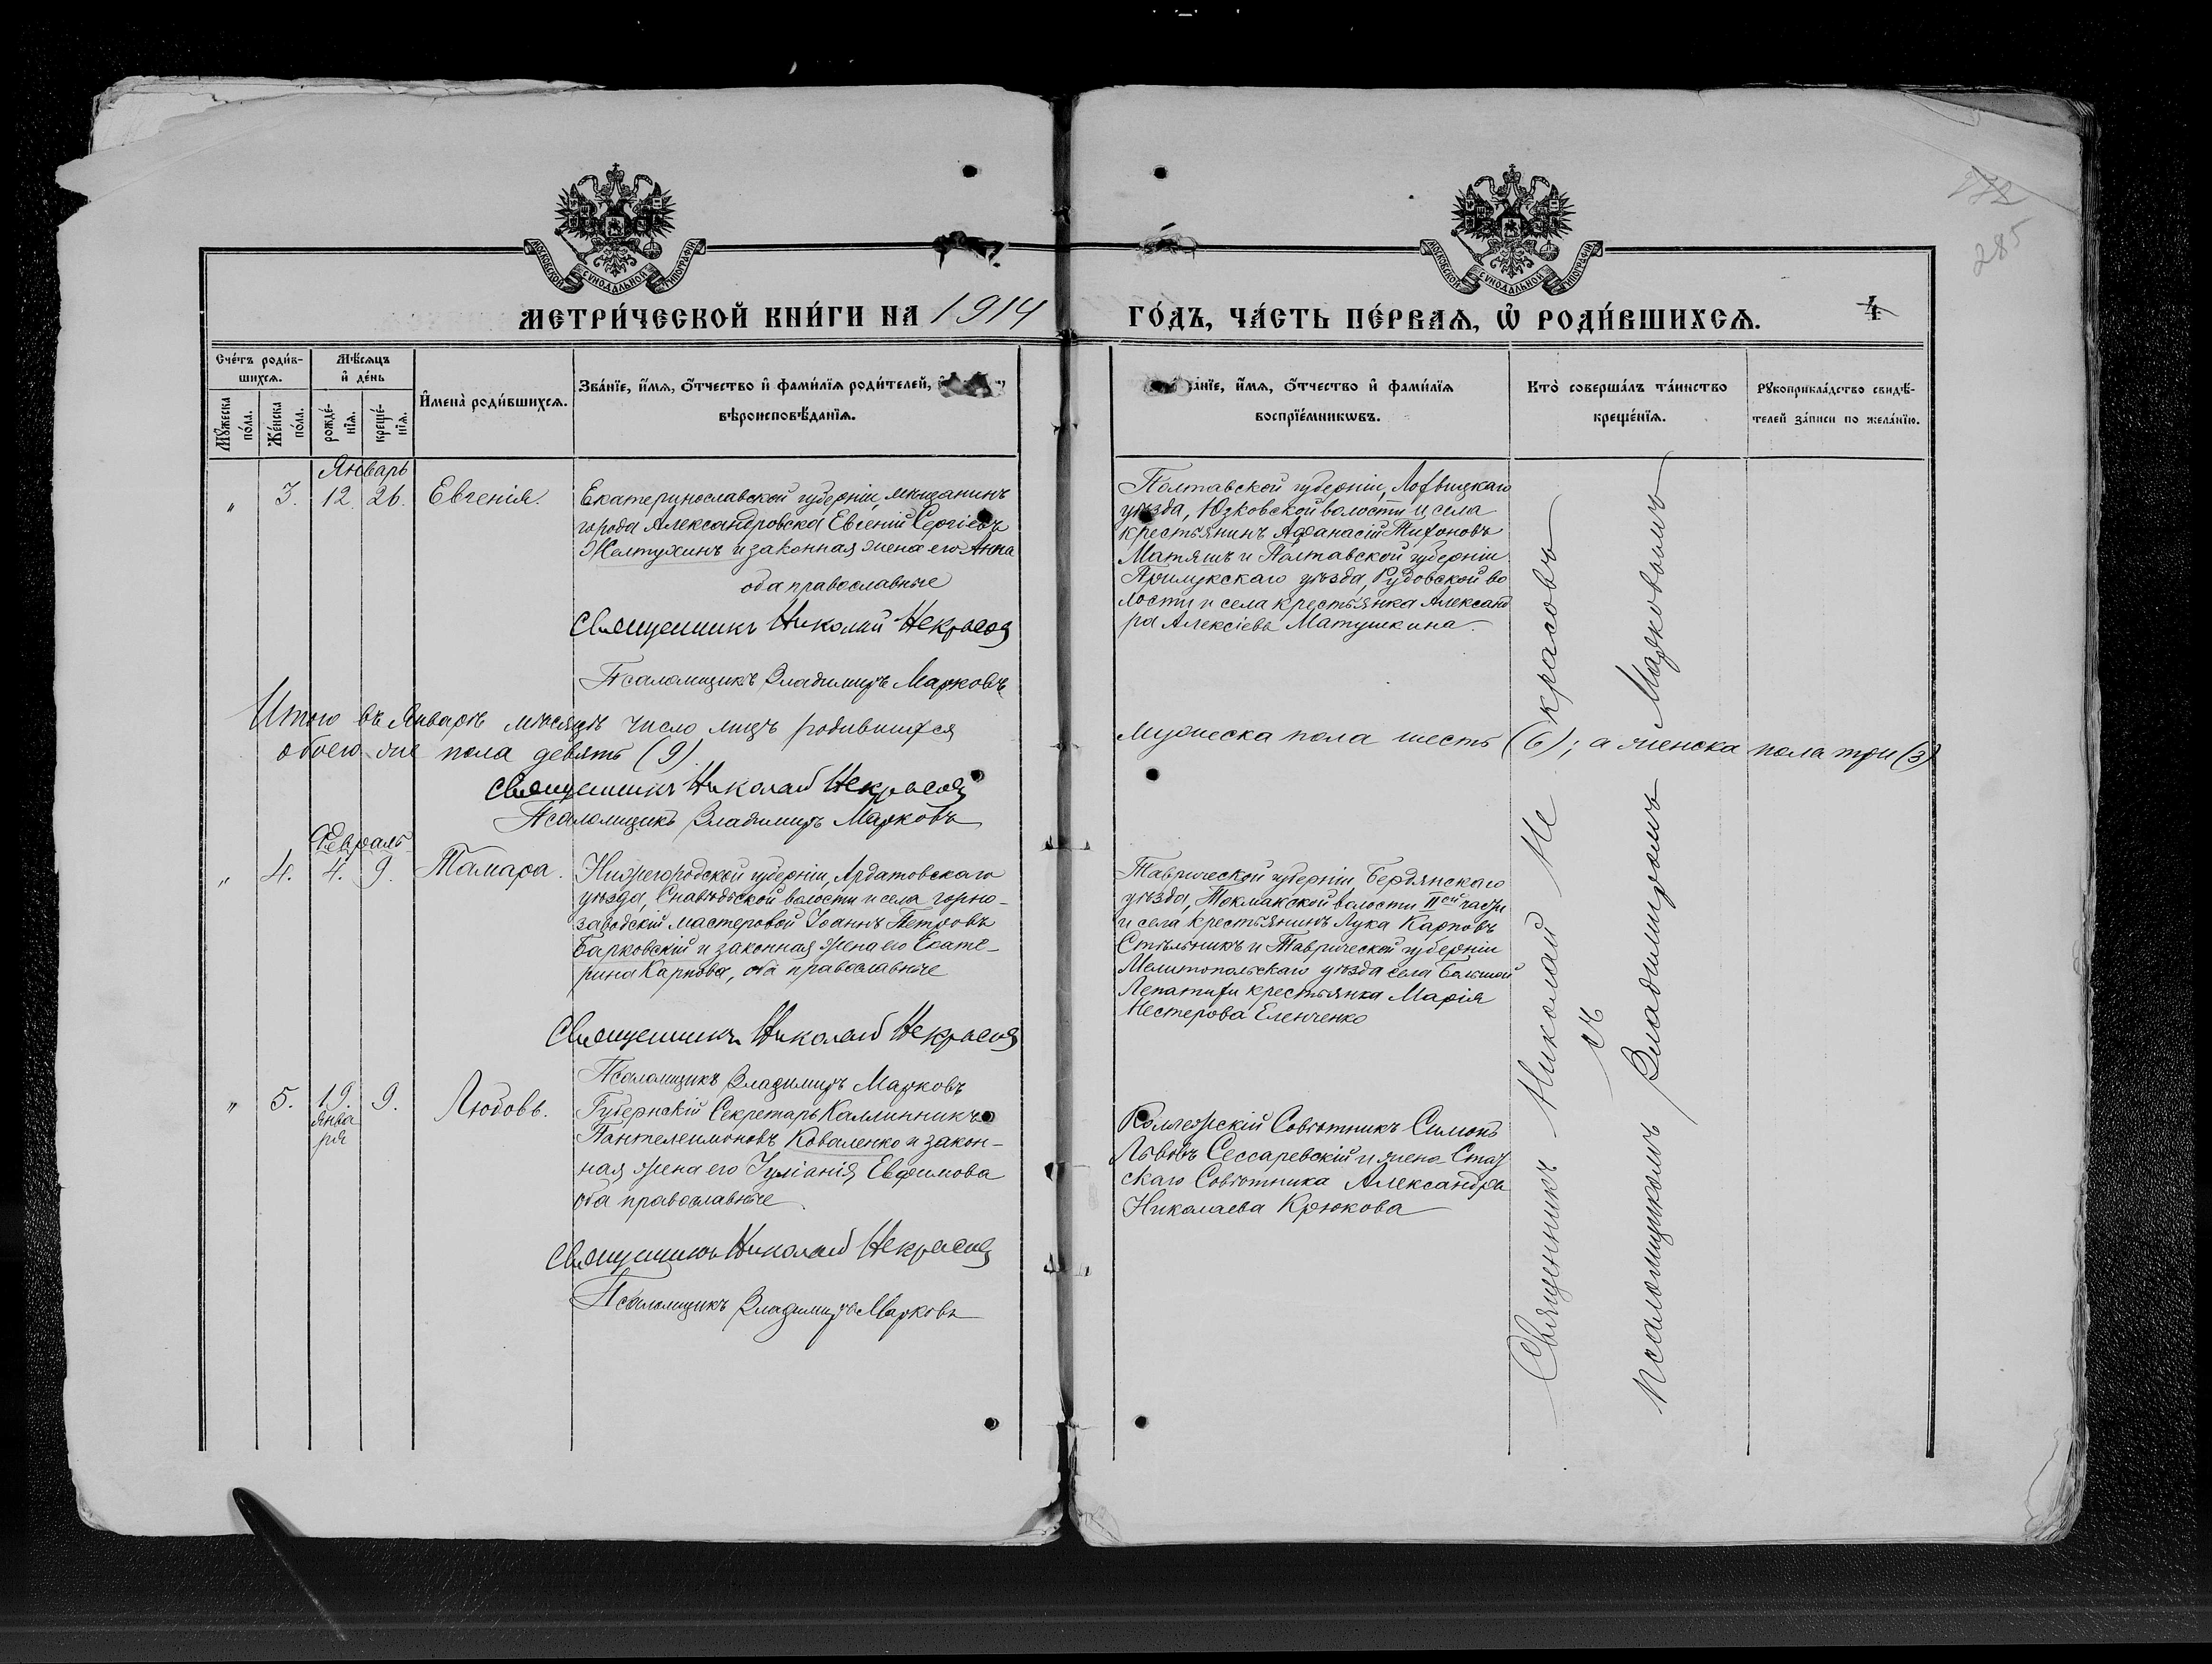 МОСКОВСКОЙ СѴНОДАЛЬНОЙ ТИПОГРАФІИ
МОСКОВСКОЙ СѴНОДАЛЬНОЙ ТИПОГРАФІИ
285
МЕТРИ́ЧЕСКОЙ КНИ́ГИ НА 1914
ГО́ДЪ, ЧА́СТЬ ПЕ́РВАѦ, Ѽ РОДИ́ВШИХСѦ.
4
Сче́тъ роди́в-
шихсѧ.
Мѣ́сѧцъ
и҆ де́нь
Мꙋ́жеска
по́ла.
Же́нска
по́ла.
рожде́-
нїѧ.
креще́-
нїѧ.
И҆мена̀ роди́вшихсѧ.
Зва́нїе, и҆́мѧ, ѻ҆́тчество и҆ фами́лїѧ роди́телей,
вѣроисповѣ́данїѧ.
и҆́мѧ, ѻ҆́тчество и҆ фами́лїѧ
воспрїе́мникѡвъ.
Кто̀ соверша́лъ та́инство
креще́нїѧ.
Рꙋкоприкла́дство свидѣ́-
телей за́писи по жела́нїю.
Январь
" 3. 12. 26. Евгенія.
Екатеринославской губерніи, мѣщанинъ
города Александровска Евгеній Сергіевъ
Желтухинъ и законная жена его Анна
оба православные
Священникъ Николай Некрасов
Псаломщикъ Владимиръ Марковъ
Полтавской губерніи, Лохвицкаго
уѣзда, Юзковской волости и села
крестьянинъ Аѳанасій Тихоновъ
Матяшъ и Полтавской губерніи
Прилукскаго уѣзда, Рудовской во
лости и села крестьянка Александ
ра Алексіева Матушкина
Итого въ Январѣ мѣсяцѣ число лицъ родившихся
обоего же пола девять (9)
мужеска пола шесть (6); а женска пола три (3)
Священникъ Николай Некрасов
Псаломщикъ Владимиръ Марковъ
Февраль
" 4. 4. 9. Тамара.
Нижегородской губерніи, Ардатовскаго
уѣзда, Снавѣдской волости и села горно-
заводскій мастеровой Іоаннъ Петровъ
Барковскій и законная жена его Екате-
рина Карпова, оба православные
Священникъ Николай Некрасов
Псаломщикъ Владимиръ Марковъ
Таврической губерніи, Бердянскаго
уѣзда, Токмакской волости IIой части
и села крестьянинъ Лука Карповъ
Стѣльникъ и Таврической губерніи
Мелитопольскаго уѣзда села Большой
Лепатихи крестьянка Марія
Нестерова Еленченко
" 5. 19. 9. Любовь.
Янва
ря
Губернскій Секретарь Каллинникъ
Пантелеимоновъ Коваленко и закон-
ная жена его Іуліанія Евфимова
оба православные
Священникъ Николай Некрасов
Псаломщикъ Владимиръ Марковъ
Коллежскій Совѣтникъ Симонъ
Львовъ Сессаревскій и жена Стат
скаго Совѣтника Александра
Николаева Крюкова
Священникъ Николай Некрасовъ
съ
псаломщикомъ Владимиромъ Марковымъ